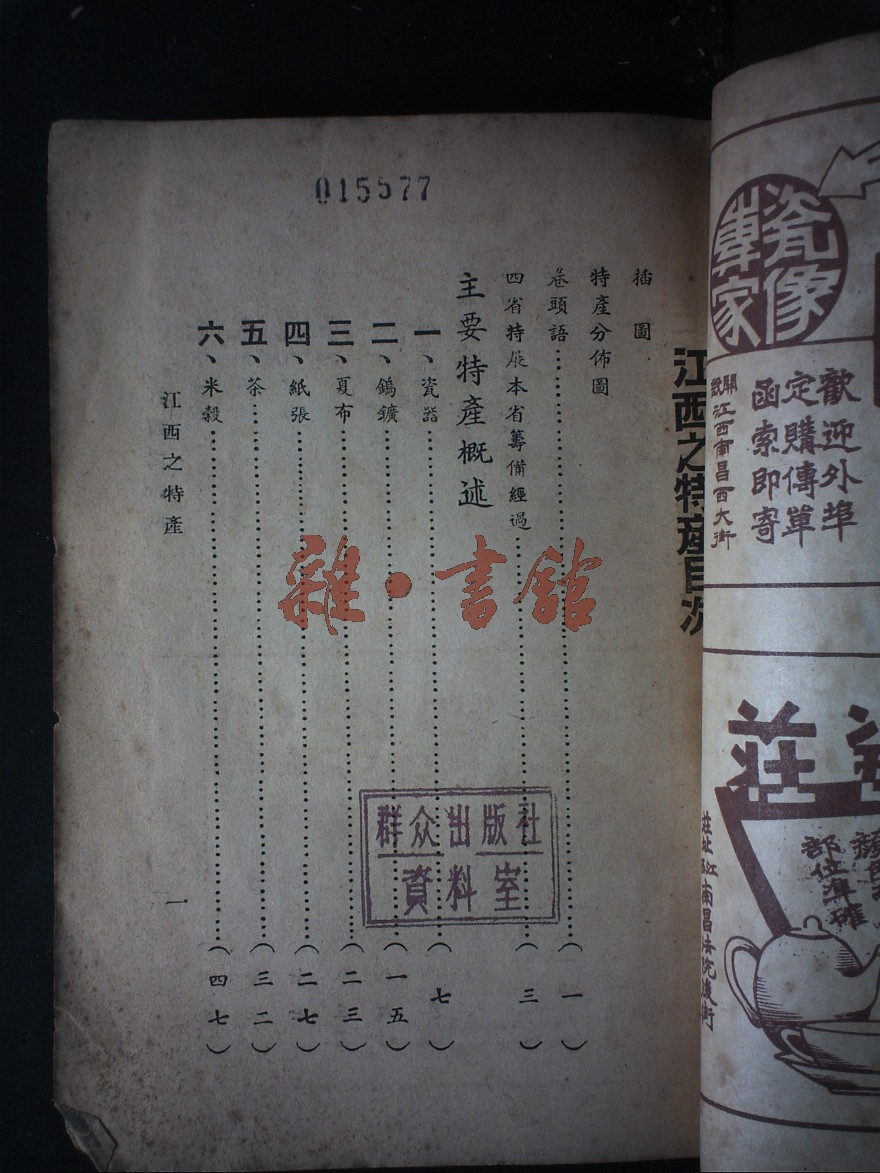 015577
江西之特產目次
插圖
特產分佈圖
卷頭語……(一)
四省特展本省籌備經過……(三)
主要特產概述
一、瓷器……(七)
二、鎢鑛……(一五)
三、夏布……(二三)
四、紙張……(二七)
五、茶……(三二)
六、米穀……(四七)
江西之特產
一
雜·書館
群众出版社
資料室
瓷像
專家
歡迎外埠
定購傳單
函索即寄
開設江西南昌西大街
莊
部位準確
莊址江西南昌法院後街